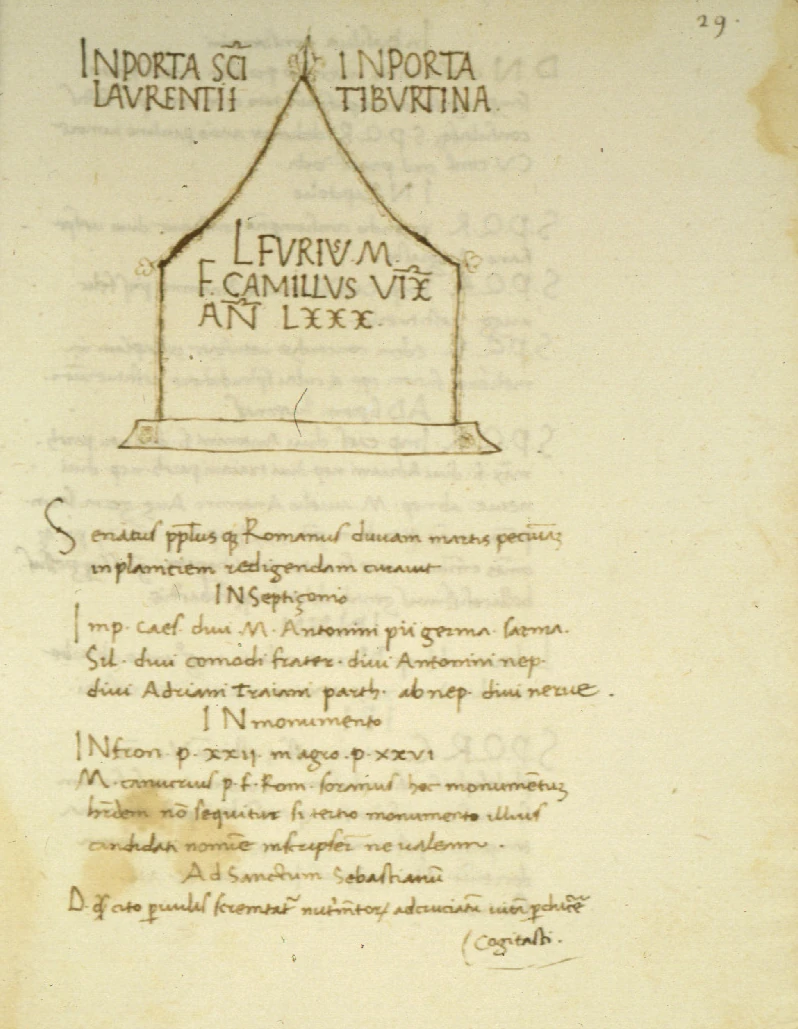 29.
INPORTA SC̃I
LAVRENTII
INPORTA
TIBVRTINA.
L FURIVS. M.
F. CAMILLVS VIX̃
AÑ LXXX.
Senatus pp̃lus q; Romanus divam martis
in planitiem redigendam curavit
IN Septiçonio
Imp. Caes. divi. M. Antonini pii germa. sarma.
Sil. divi comodi frater. divi Antonini nep.
divi Adriani Traiani parth. ab nep. divi nerve.
IN monumento
IN fron. p. xxii. in agro. p. xxvi
M. canucius p. f. Rom. soranus hoc monumẽtuz
nõ sequitur si tertio monumento illius
candidati nomẽ inscripser̃ ne valeam.
Ad Sanctum Sebastianũ
D. cito
Cogitasti.